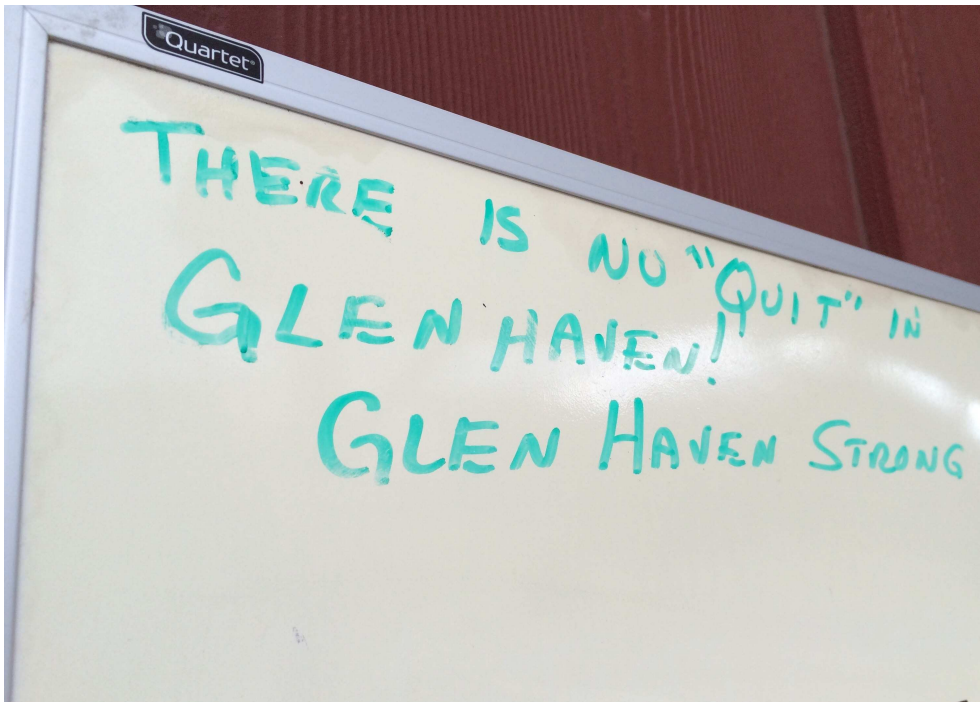 Quartet
THERE IS NO "QUIT" IN
GLEN HAVEN!
GLEN HAVEN STRONG